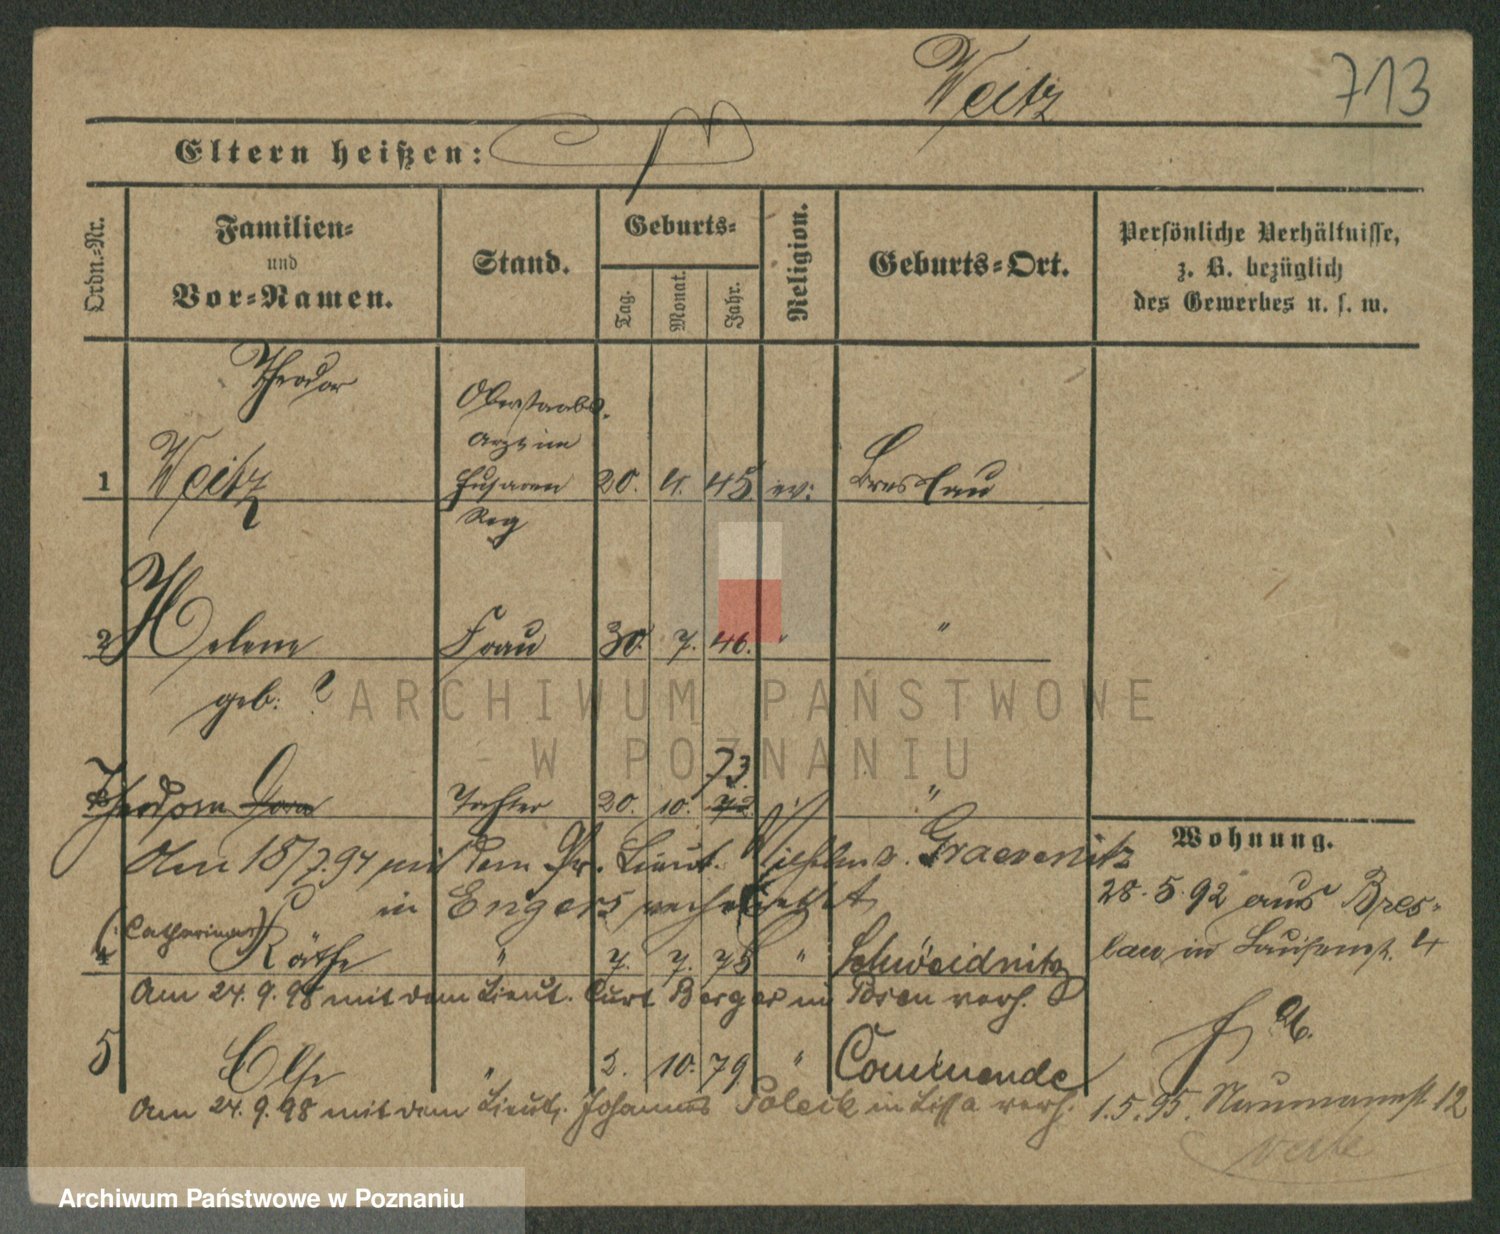 Weitz 713
Eltern heißen:
Ordn.-Nr.
Familien-
und
Vor-Namen.
Stand.
Geburts-
Tag.
Monat.
Jahr.
Religion.
Geburts-Ort.
Persönliche Verhältnisse,
z. B. bezüglich
des Gewerbes u. s. w.
Theodor
Oberstaabs.
Arzt im
1 Weitz Husaren 20. 4. 45 ev: Breslau
Reg
2 Helene Frau 30. 7. 46. " "
geb. ?
73.
Theodora Dora Tochter 20. 10. 72 "
Am 15/7.94 mit dem Pr. Lieut. Wilhelm v. Graevenitz
in Engers verheirathet
(Catharina)
4 Käthe " 7. 7. 75 " Schweidnitz
Am 24.9.98 mit dem Lieut. Curt Berger in Posen verh.
5 Else " 2. 10. 79 " Communde
Am 24.9.98 mit dem Lieut. Johannes Poleck in Lissa verh.
Wohnung.
28.5.92 aus Bres-
lau in Louisenst. 4
1.5.95. Naumannst 12
ARCHIWUM PAŃSTWOWE
W POZNANIU
Archiwum Państwowe w Poznaniu